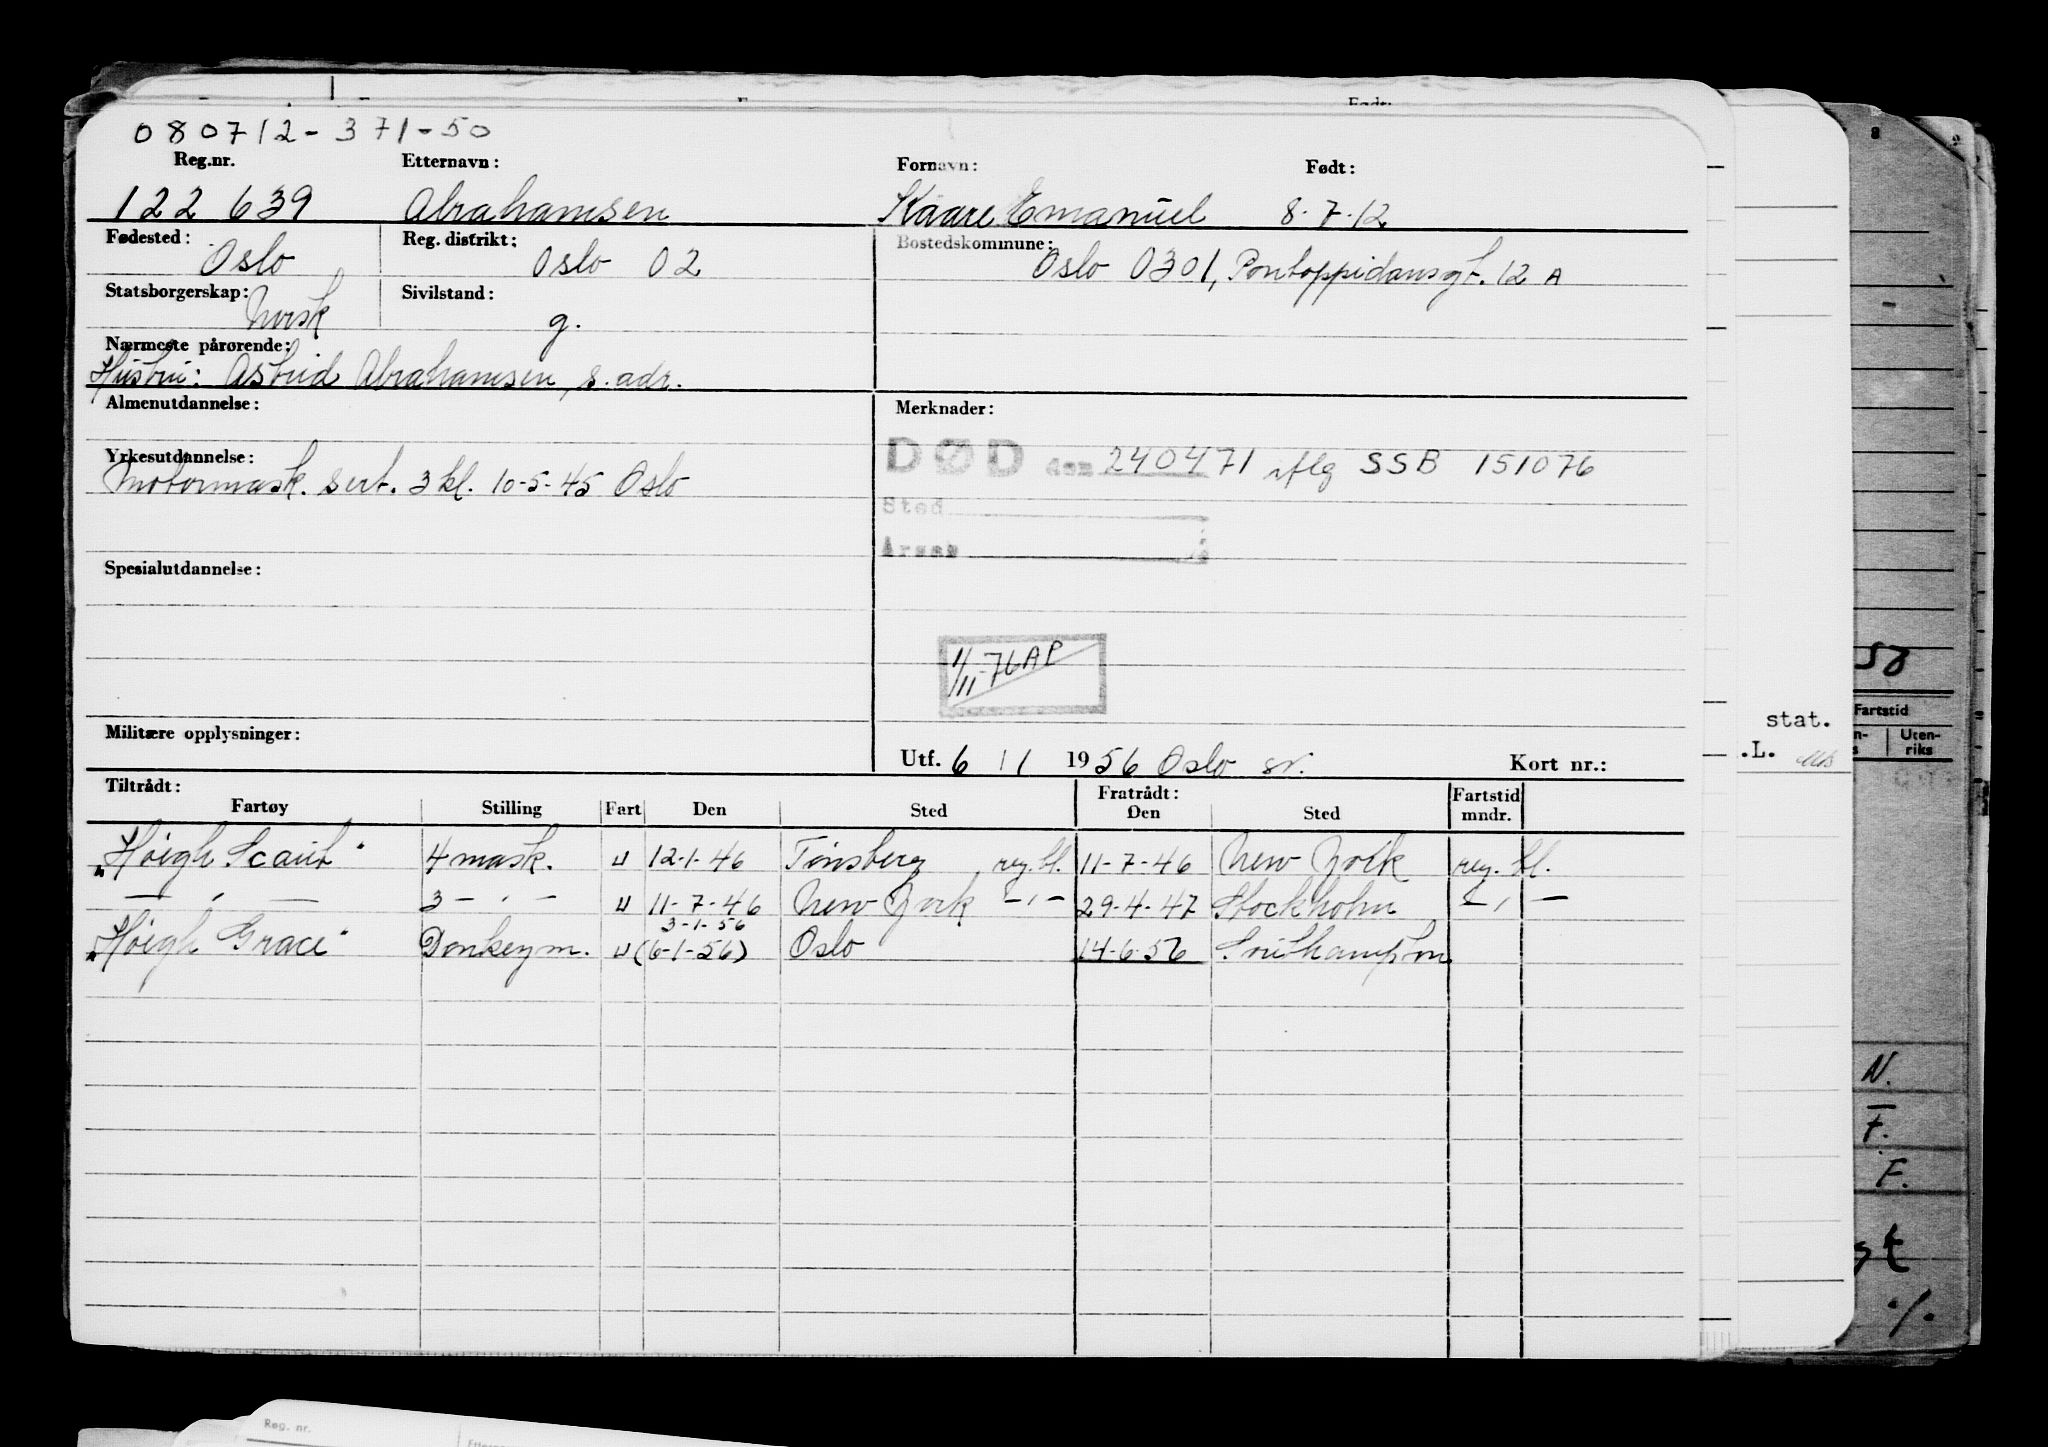 080712-371-50
Reg.nr. Etternavn: Fornavn: Født:
122 639 Abrahamsen Kaare Emanuel 8.7.12
Fødested: Oslo Reg. distrikt: Oslo 02 Bostedskommune: Oslo 0301, Pontoppidansgt. 12 A
Statsborgerskap: Norsk Sivilstand: g.
Nærmeste pårørende:
Hustru: Astrid Abrahamsen, s. adr.
Almenutdannelse: Merknader:
DØD den 240471 iflg SSB 151076
Yrkesutdannelse:
Motormask. sert. 3 kl. 10-5-45 Oslo
Sted
Årsak
Spesialutdannelse:
1/11-76 AP
Militære opplysninger:
Utf. 6 11 1956 Oslo sr. Kort nr.:
Tiltrådt: Fratrådt: Fartstid
Fartøy Stilling Fart Den Sted Den Sted mndr.
"Høegh Scout" 4 mask. U 12-1-46 Tønsberg reg. bl. 11-7-46 New York reg. bl.
— " — 3 — " — U 11-7-46 New York — " — 29-4-47 Stockholm — " —
3-1-56
"Høegh Grace" Donkeym. U (6-1-56) Oslo 14-6-56 Southampton
Født:
8 2
50
Fartstid
Uten-
riks
stat.
.L.
N.
F.
F.
Reg. nr.